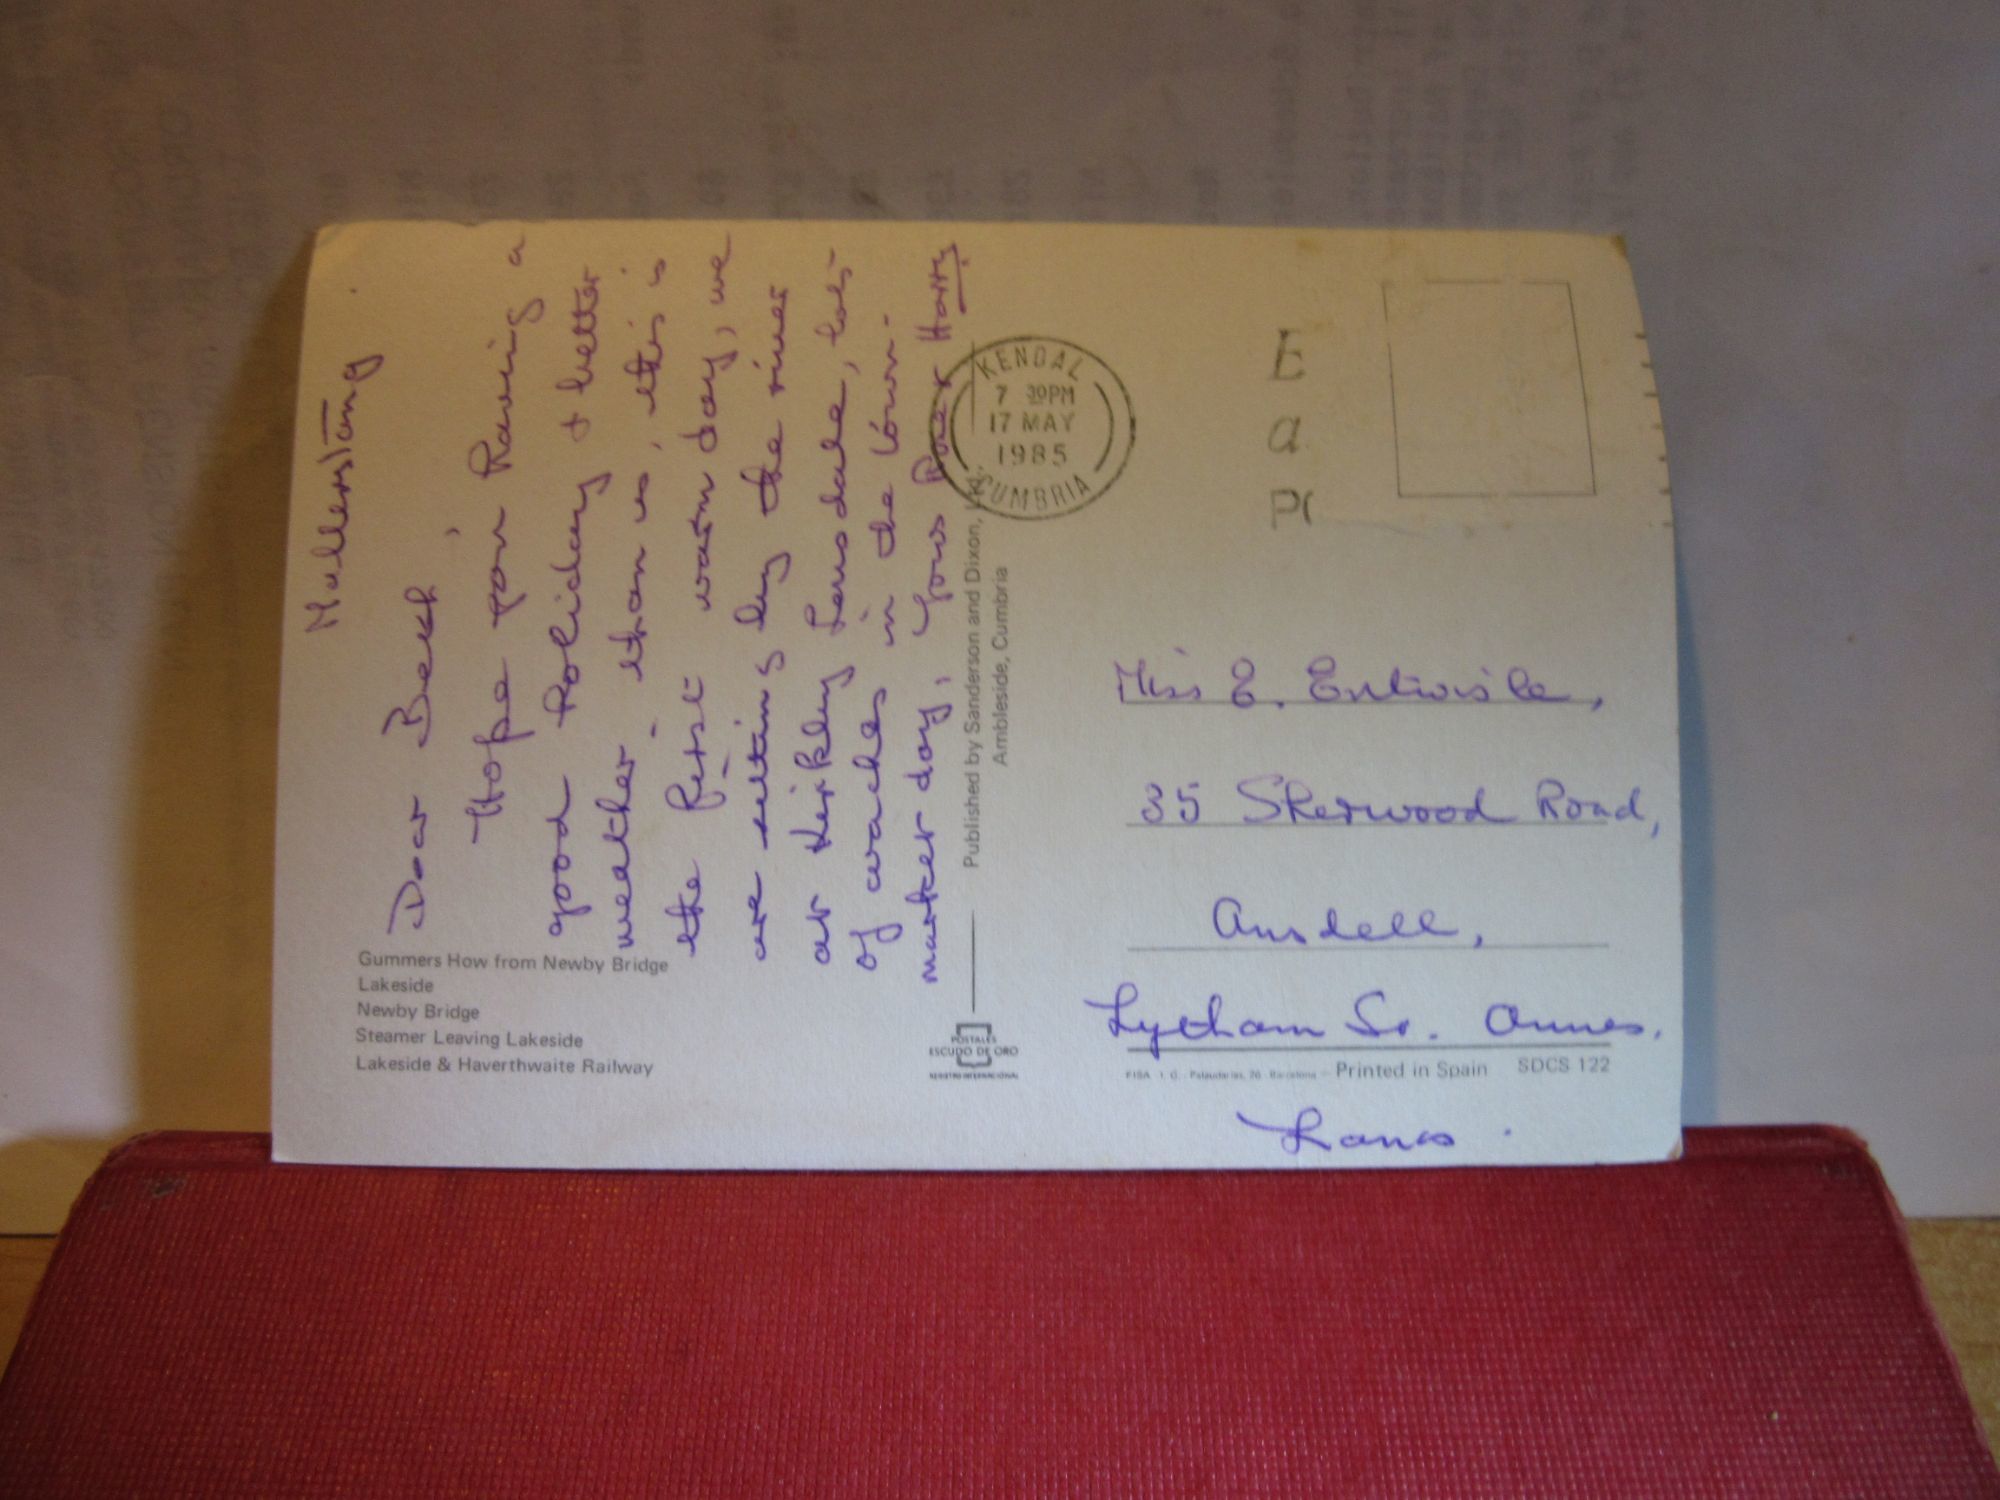 Mallerstang
Dear Beck,
Hope you having a
good holiday & better
weather than us, this is
the first warm day, we
are sitting by the river
at Kirkby Lonsdale, lots
of coaches in the town.
market day, Yours Harry
Gummers How from Newby Bridge
Lakeside
Newby Bridge
Steamer Leaving Lakeside
Lakeside & Haverthwaite Railway
Published by Sanderson and Dixon, Ltd.,
Ambleside, Cumbria
POSTALES
ESCUDO DE ORO
REGISTRO INTERNACIONAL
KENDAL
7 30PM
17 MAY
1985
CUMBRIA
E
a
P(
Miss E. Entwisle,
35 Sherwood Road,
Ansdell,
Lytham St. Annes.
FISA I. G. - Palaudarias, 26 - Barcelona - Printed in Spain SDCS 122
Lancs.